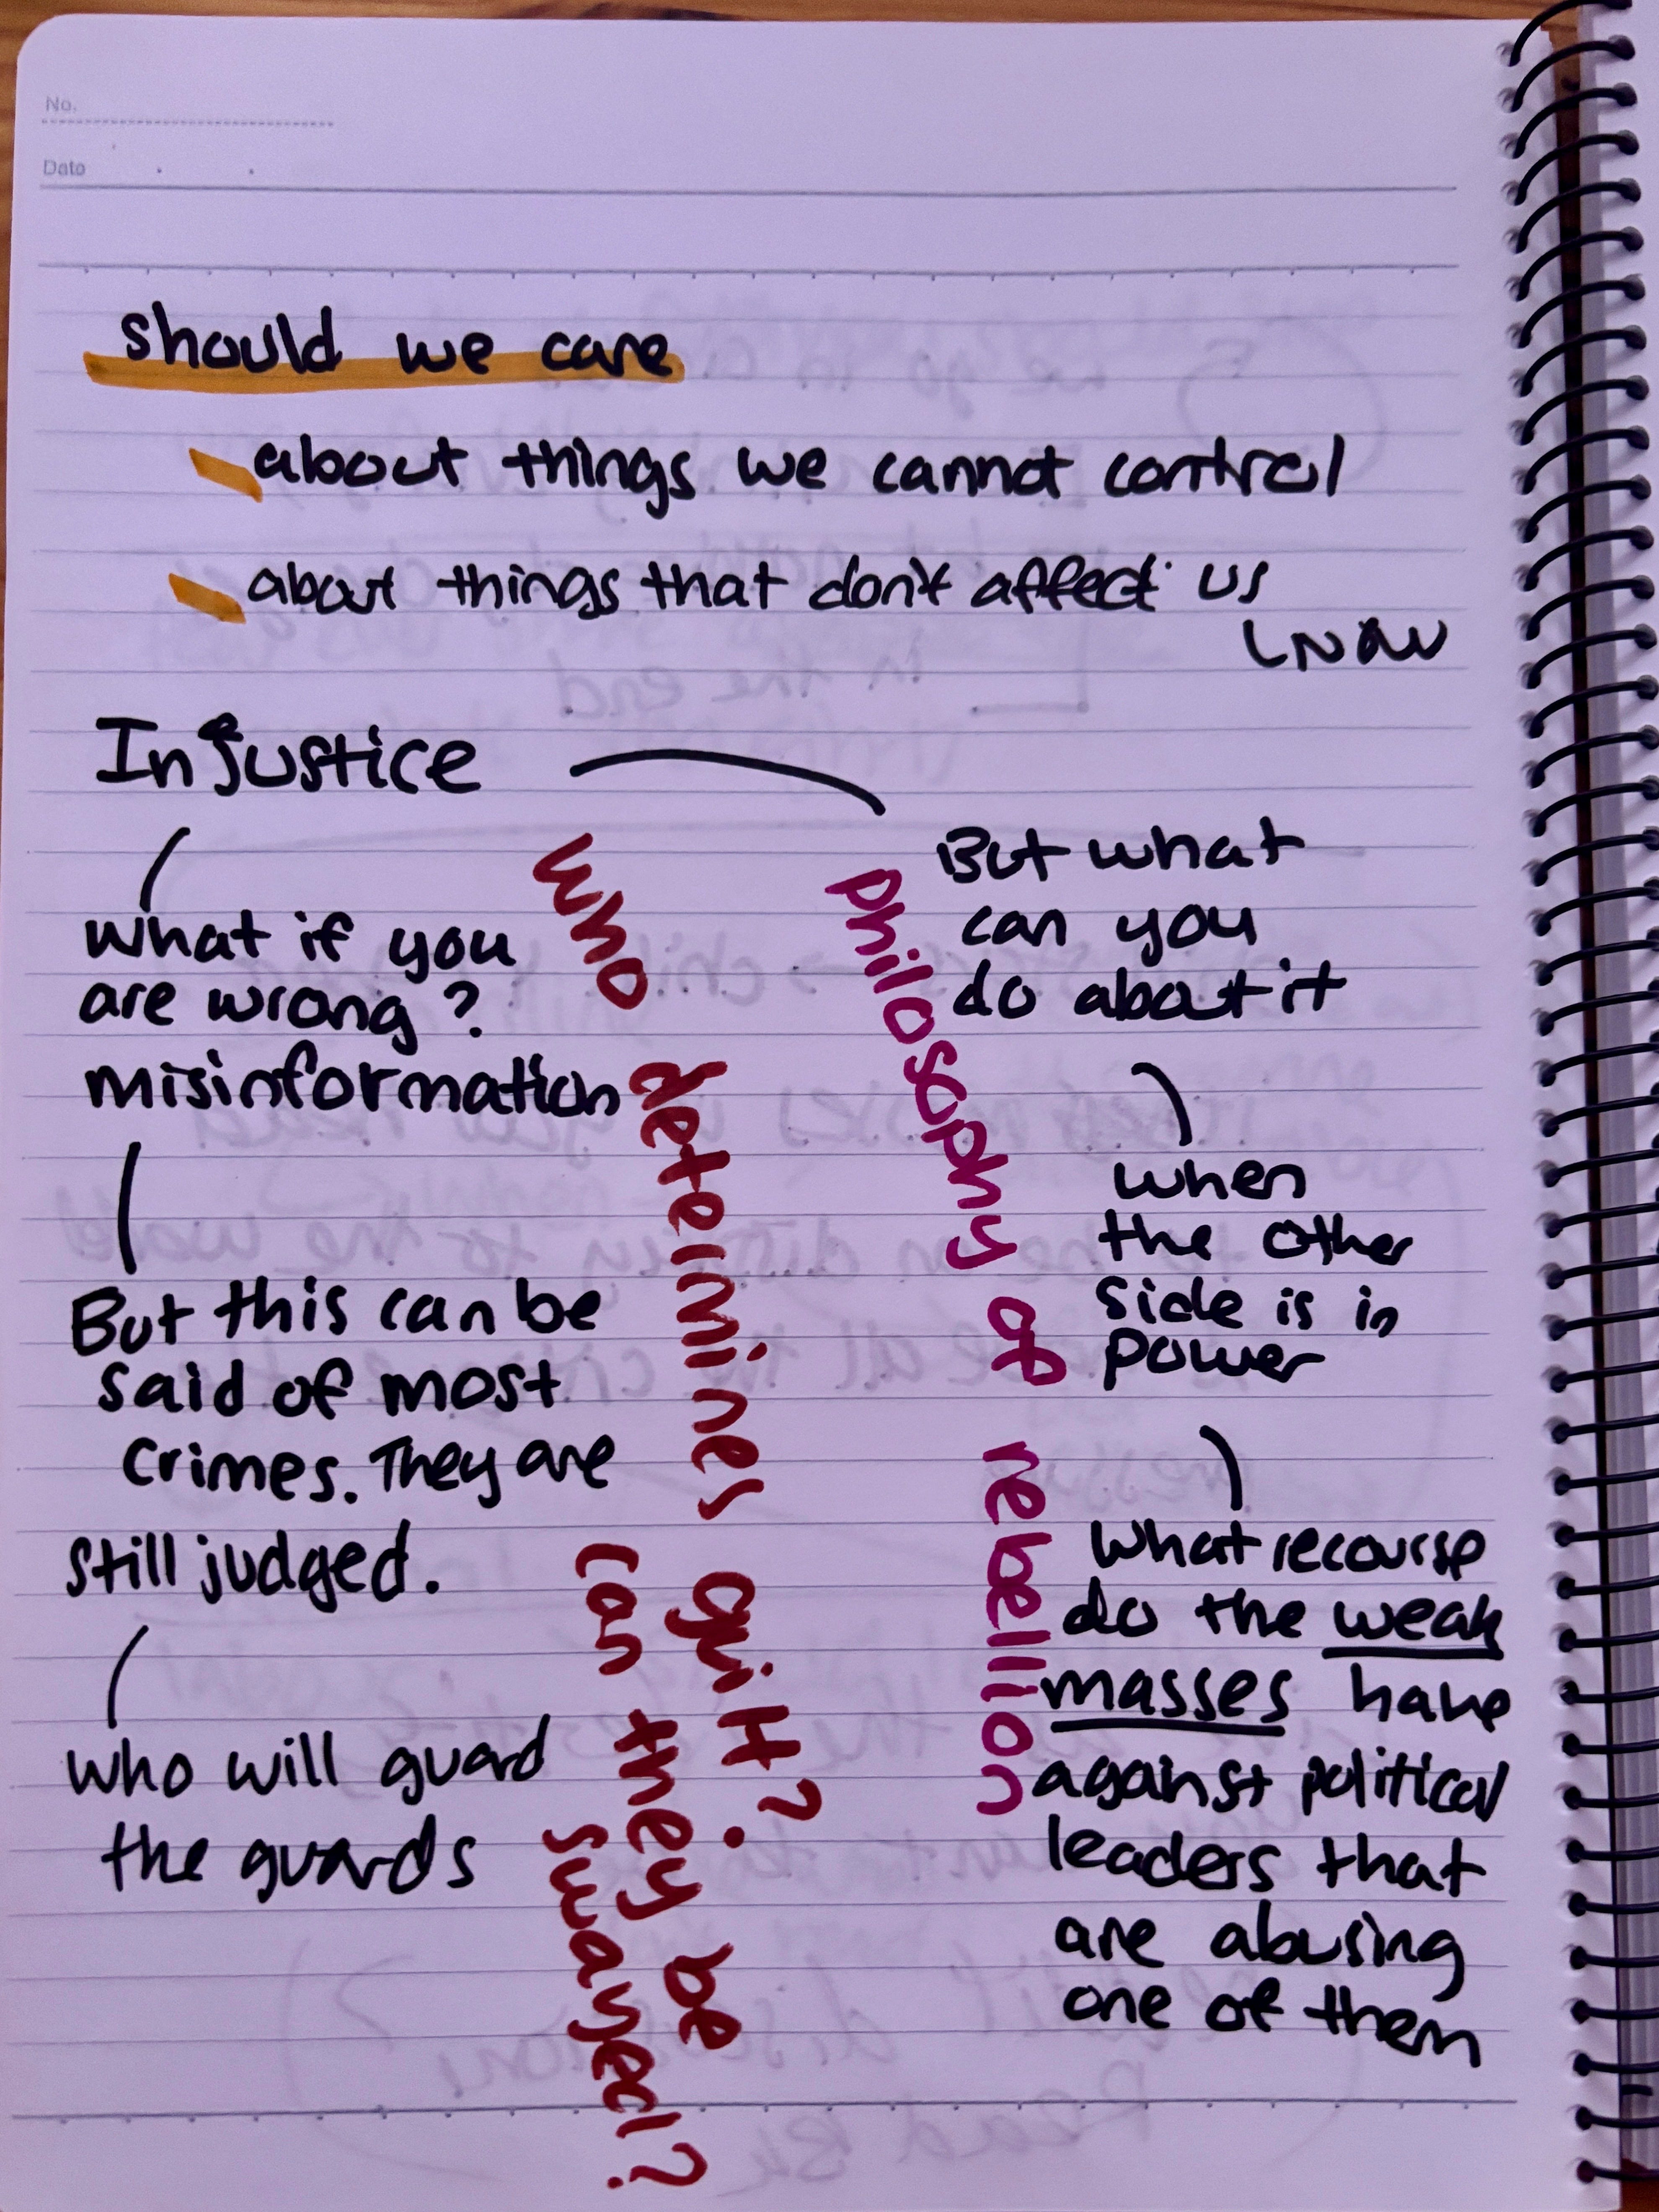 No.
Date
should we care
about things we cannot control
about things that don't affect us
NOW
Injustice
what if you
are wrong?
misinformation
But this can be
said of most
crimes. They are
still judged.
who will guard
the guards
who determines guilt?
can they be
swayed?
philosophy of rebellion
But what
can you
do about it
when
the other
side is in
power
What recourse
do the weak
masses have
against political
leaders that
are abusing
one of them